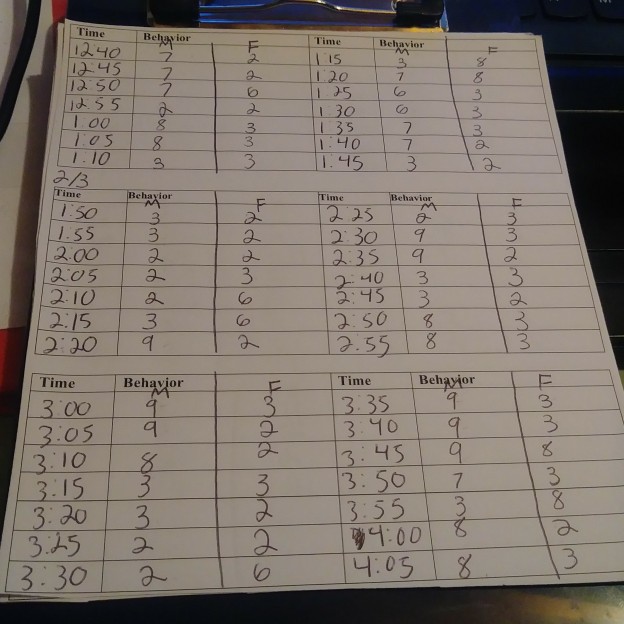 Time Behavior M F Time Behavior M F
12:40 7 2 1:15 3 8
12:45 7 2 1:20 7 8
12:50 7 6 1:25 6 3
12:55 2 2 1:30 6 3
1:00 8 3 1:35 7 3
1:05 8 3 1:40 7 2
1:10 3 3 1:45 3 2
2/3
Time Behavior M F Time Behavior M F
1:50 3 2 2:25 2 3
1:55 3 2 2:30 9 3
2:00 2 2 2:35 9 2
2:05 2 3 2:40 3 3
2:10 2 6 2:45 3 2
2:15 3 6 2:50 8 3
2:20 9 2 2:55 8 3
Time Behavior M F Time Behavior M F
3:00 9 3 3:35 9 3
3:05 9 2 3:40 9 3
3:10 8 2 3:45 9 8
3:15 3 3 3:50 7 3
3:20 3 2 3:55 3 8
3:25 2 2 4:00 8 2
3:30 2 6 4:05 8 3